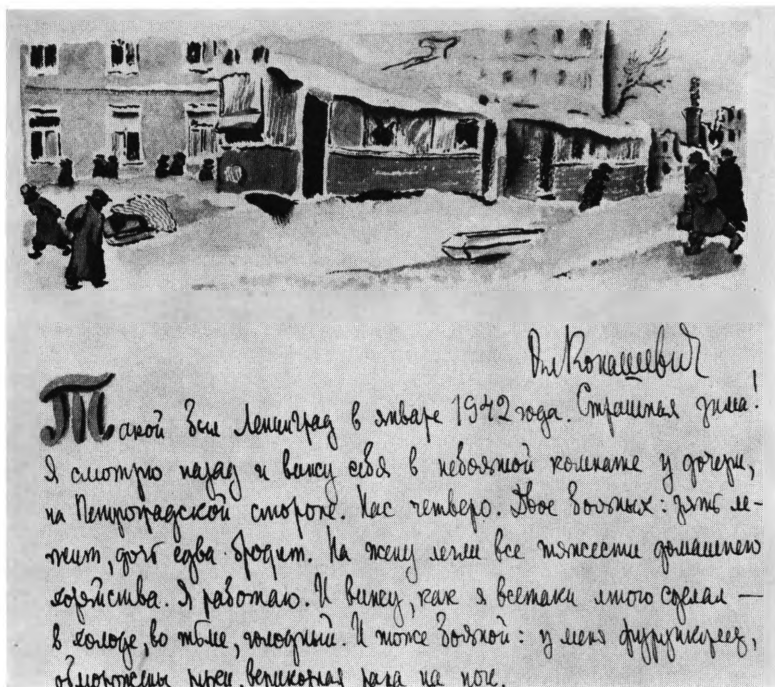 Вл Конашевич
Такой был Ленинград в январе 1942 года. Страшная зима!
Я смотрю назад и вижу себя в небольшой комнате у дочери,
на Петроградской стороне. Нас четверо. Двое больных: зять ле-
жит, дочь едва бродит. На жену легли все тяжести домашнего
хозяйства. Я работаю. И вижу, как я всетаки много сделал —
в холоде, во тьме, голодный. И тоже больной: у меня фурункулез,
обморожены руки, рана на ноге.